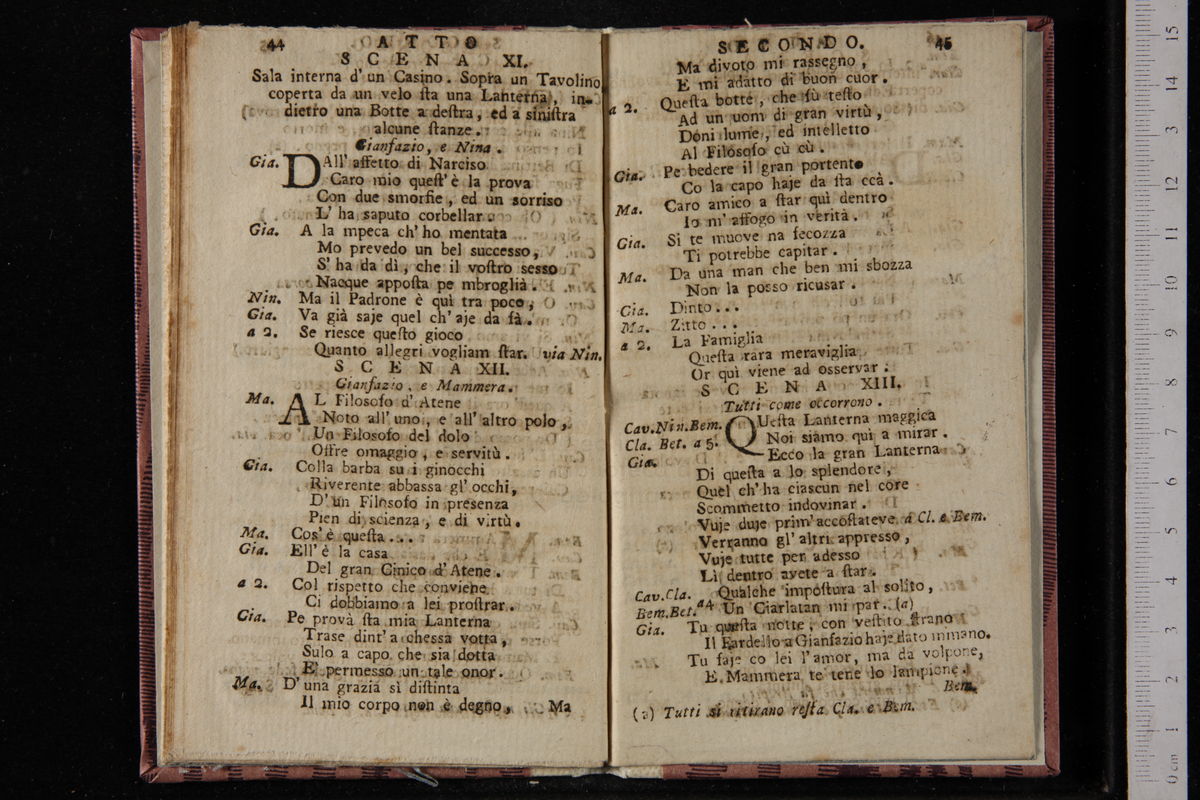 44 ATTO
SCENA XI.
Sala interna d' un Casino. Sopra un Tavolino
coperta da un velo ſta una Lanterna, in-
dietro una Botte a deſtra, ed a siniſtra
alcune ſtanze.
Gianfazio, e Nina.
Gia. DAll' affetto di Narciso
Caro mio queſt' è la prova
Con due smorfie, ed un sorriso
L' ha saputo corbellar.
Gia. A la mpeca ch' ho mentata
Mo prevedo un bel successo,
S' ha da dì, che il voſtro sesso
Nacque appoſta pe mbroglià.
Nin. Ma il Padrone è quì tra poco,
Gia. Va già saje quel ch' aje da fà.
a 2. Se riesce queſto gioco
Quanto allegri vogliam ſtar. via Nin.
SCENA XII.
Gianfazio, e Mammera.
Ma. AL Filosofo d' Atene
Noto all' uno, e all' altro polo,
Un Filosofo del dolo
Offre omaggio, e servitù.
Gia. Colla barba su i ginocchi
Riverente abbassa gl' occhi,
D' un Filosofo in presenza
Pien di scienza, e di virtù.
Ma. Cos' è queſta...
Gia. Ell' è la casa
Del gran Cinico d' Atene.
a 2. Col rispetto che conviene
Ci dobbiamo a lei proſtrar.
Gia. Pe provà ſta mia Lanterna
Trase dint' a chessa votta,
Sulo a capo che sia dotta
E' permesso un tale onor.
Ma. D' una grazia sì diſtinta
Il mio corpo non è degno, Ma
SECONDO. 45
Ma divoto mi rassegno,
E mi adatto di buon cuor.
a 2. Queſta botte, che fù teſto
Ad un uom di gran virtù,
Doni lume, ed intelletto
Al Filosofo cù cù.
Gia. Pe bedere il gran portento
Co la capo haje da ſta ccà.
Ma. Caro amico a ſtar quì dentro
Io m' affogo in verità.
Gia. Si te muove na fecozza
Ti potrebbe capitar.
Ma. Da una man che ben mi sbozza
Non la posso ricusar.
Gia. Dinto...
Ma. Zitto...
a 2. La Famiglia
Queſta rara meraviglia
Or quì viene ad osservar.
SCENA XIII.
Tutti come occorrono.
Cav.Nin.Bem. QUeſta Lanterna maggica
Cla. Bet. a 5. Noi siamo quì a mirar.
Gia. Ecco la gran Lanterna
Di queſta a lo splendore,
Quel ch' ha ciascun nel core
Scommetto indovinar.
Vuje duje prim' accoſtateve a Cl. e Bem.
Verranno gl' altri appresso,
Vuje tutte per adesso
Lì dentro avete a ſtar.
Cav.Cla. Qualche impoſtura al solito,
Bem.Bet. a4 Un Ciarlatan mi par. (a)
Gia. Tu queſta notte, con veſtito ſtrano
Il Fardello a Gianfazio haje dato mmano.
Tu faje co lei l' amor, ma da volpone,
E Mammera te tene lo lampione.
Bem.
(a) Tutti si ritirano reſta Cla. e Bem.